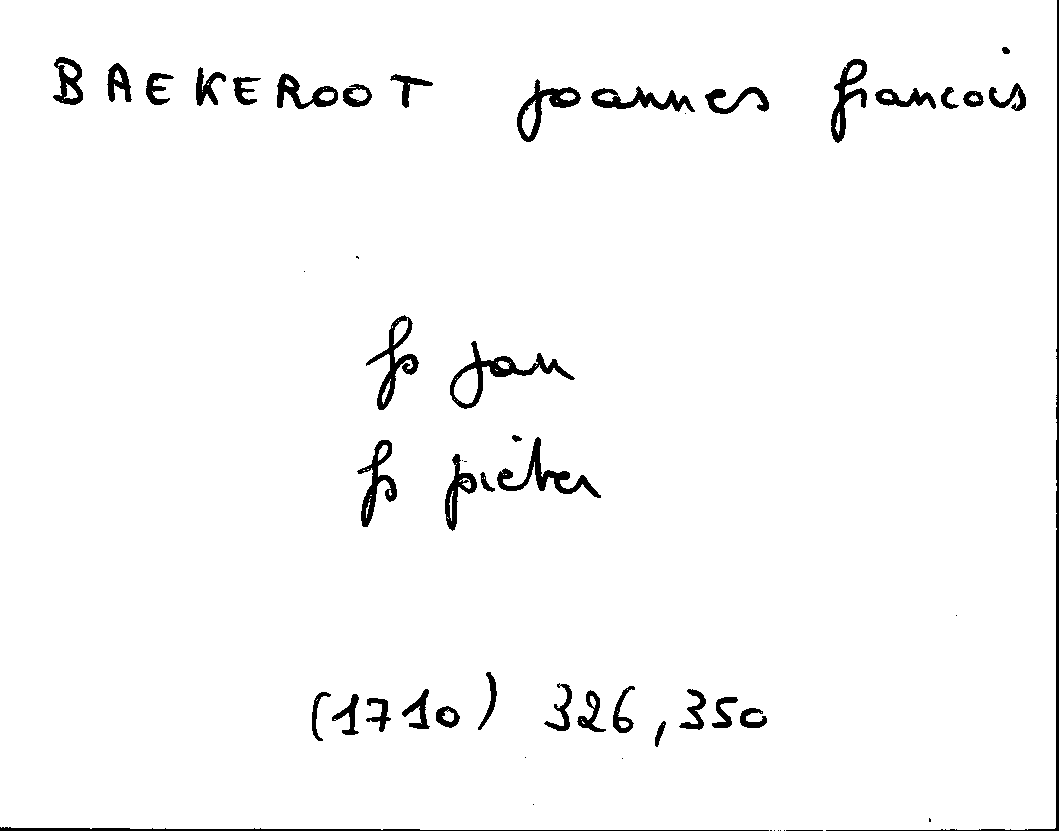 BAEKEROOT joannes francois
fs jan
fs pieter
(1710) 326,350